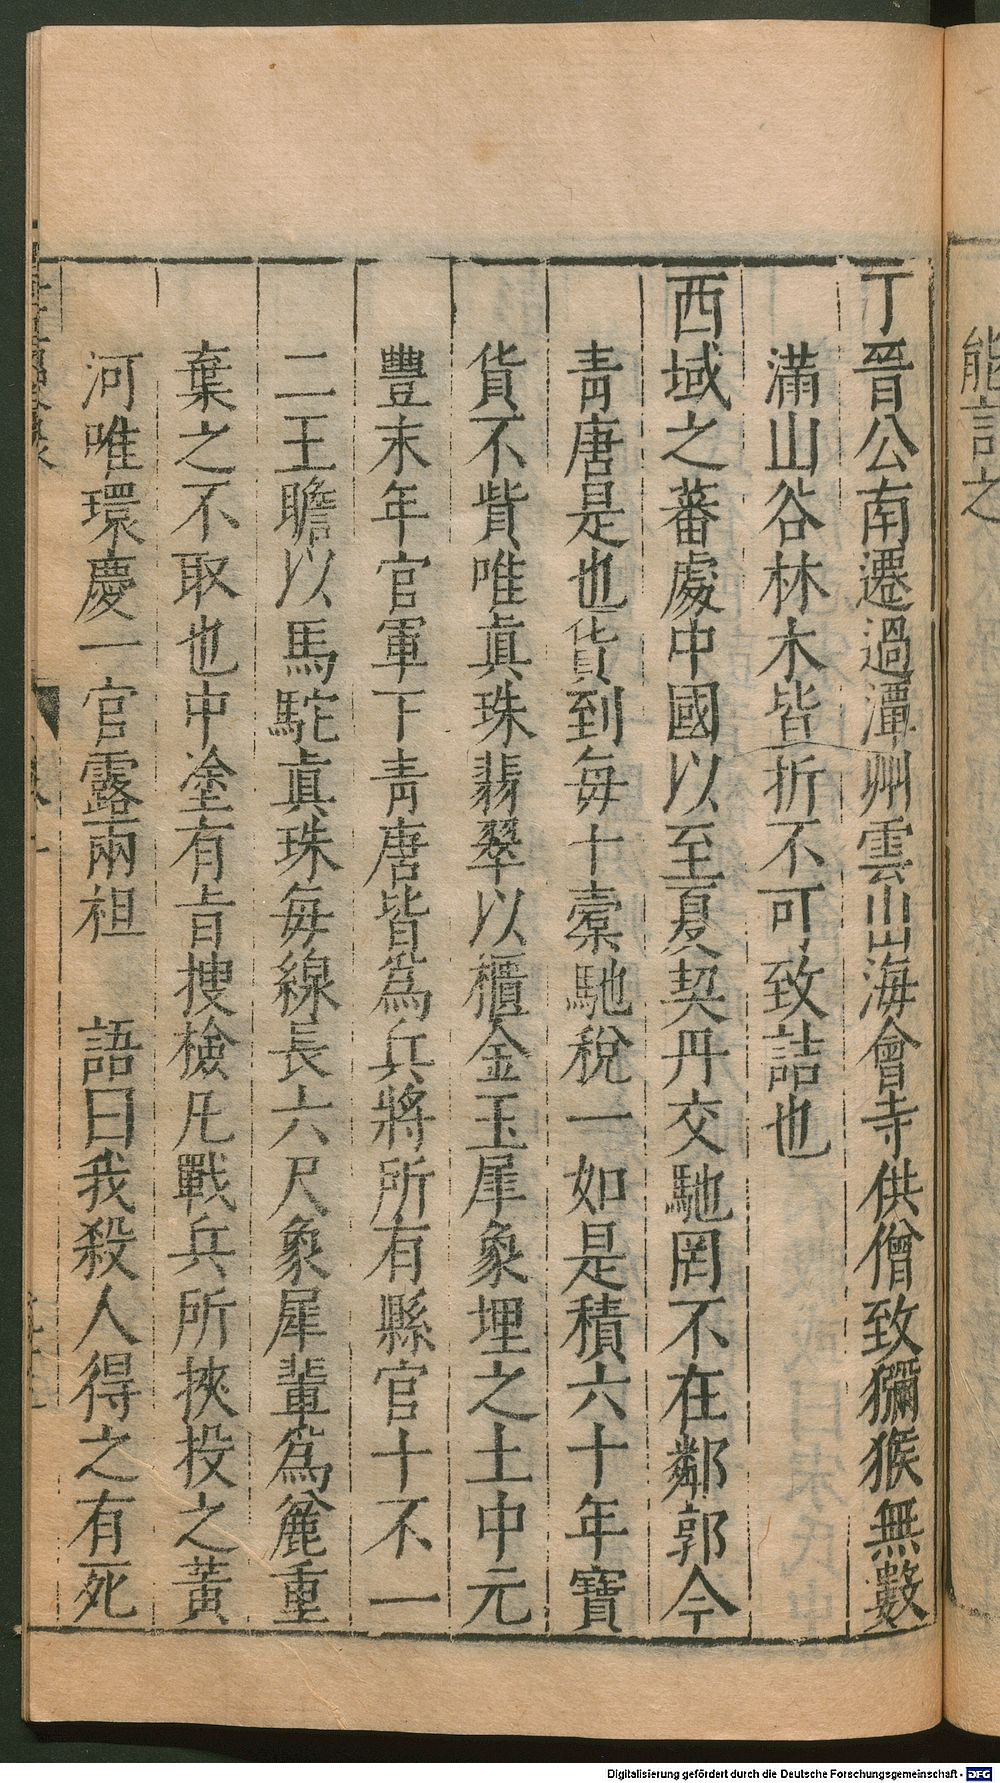 能言之
丁晉公南遷過潭州雲山海會寺供僧致獼猴無數
滿山谷林木皆折不可致詰也
西域之蕃處中國以至夏契丹交馳罔不在鄰郭今
青唐是也貨到每十橐馳稅一如是積六十年寶
貨不貲唯眞珠翡翠以櫃金玉犀象埋之土中元
豐末年官軍下青唐皆爲兵將所有縣官十不一
二王瞻以馬駞眞珠每線長六尺象犀輩爲麄重
棄之不取也中塗有旨搜檢凡戰兵所挾投之黃
河唯環慶一官露兩袒 語曰我殺人得之有死
Digitalisierung gefördert durch die Deutsche Forschungsgemeinschaft - DFG